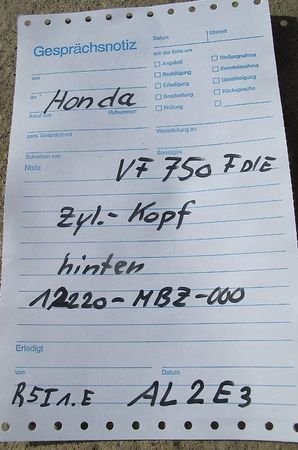 Gesprächsnotiz
Datum
Uhrzeit
mit der Bitte um
von
Angebot
Stellungnahme
Bestätigung
Kenntnisnahme
an
Honda
Erledigung
Genehmigung
Anruf von
Rufnummer
Bearbeitung
Rücksprache
Prüfung
pers. Gespräch mit
Weiterleitung an
Schreiben von
Sonstiges
Notiz
VF 750 F DIE
Zyl.-Kopf
hinten
12220-MBZ-000
Erledigt
von
Datum
R5I1.E AL2E3